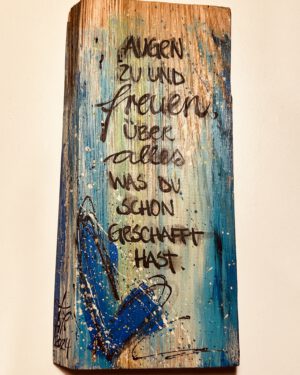 AUGEN
ZU UND
freuen,
ÜBER
alles
WAS DU
SCHON
GESCHAFFT
HAST.